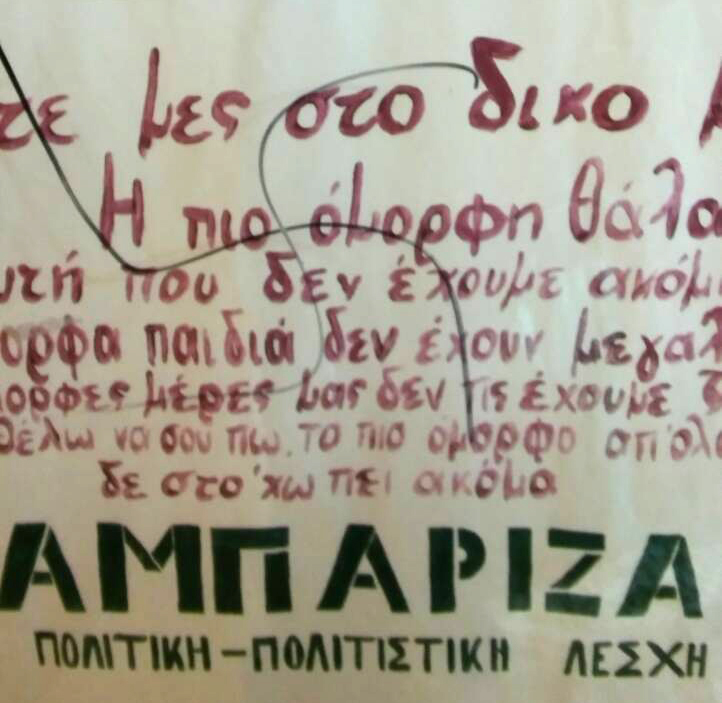 τε μες στο δικο μ
Η πιο όμορφη θάλα
υτή που δεν έχουμε ακόμ
ορφα παιδιά δεν έχουν μεγαλ
μορφες μέρες μας δεν τις έχουμε
θέλω να σου πω. το πιο όμορφο απ'όλ
δε στο'χω πει ακόμα
ΑΜΠΑΡΙΖΑ
ΠΟΛΙΤΙΚΗ-ΠΟΛΙΤΙΣΤΙΚΗ ΛΕΣΧΗ